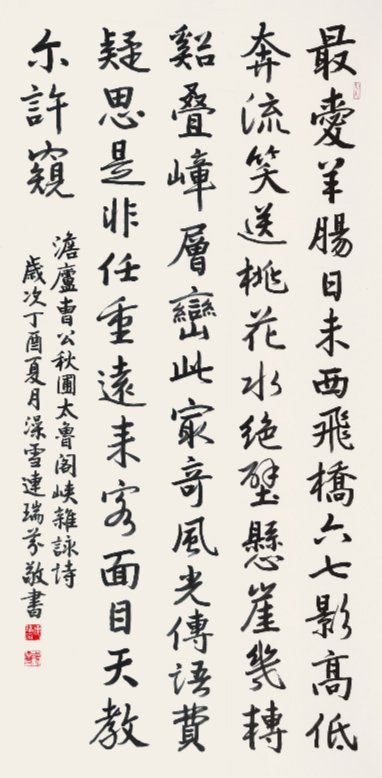 最愛羊腸日未西飛橋六七影高低
奔流笑送桃花水絶壁懸崖幾轉
谿疊嶂層巒此㝡奇風光傳語費
疑思是非任重遠来客面目天教
尒許窺
澹廬曹公秋圃太魯閣峽雜詠詩
歲次丁酉夏月澡雪連瑞芬敬書